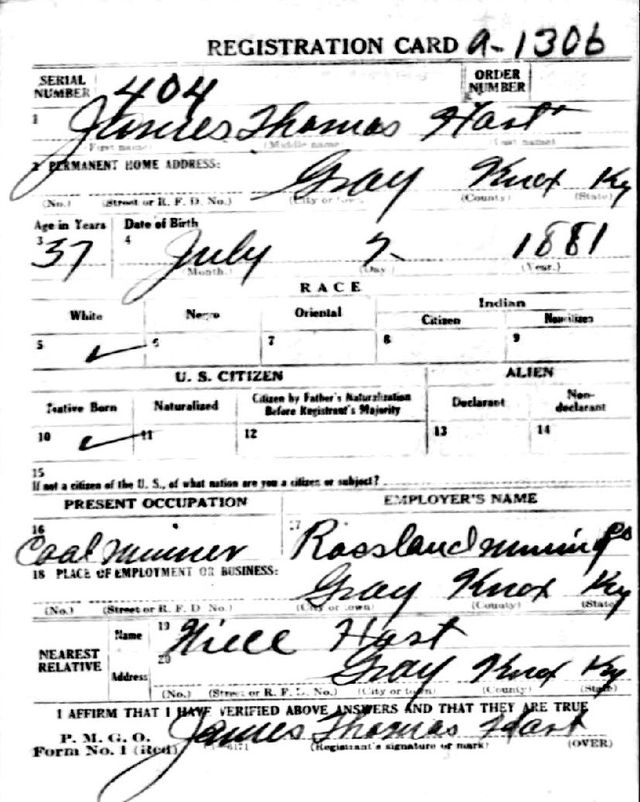 REGISTRATION CARD a-1306
SERIAL NUMBER 404 ORDER NUMBER
1 James Thomas Hart
(First name) (Middle name) (Last name)
2 PERMANENT HOME ADDRESS:
Gray Knox Ky
(No.) (Street or R. F. D. No.) (City or town) (County) (State)
Age in Years Date of Birth
3 37 4 July 7 1881
(Month.) (Day.) (Year.)
RACE
White Negro Oriental Indian
Citizen Noncitizen
5 ✓ 6 7 8 9
U. S. CITIZEN ALIEN
Native Born Naturalized Citizen by Father's Naturalization Before Registrant's Majority Declarant Non-declarant
10 ✓ 11 12 13 14
15
If not a citizen of the U. S., of what nation are you a citizen or subject?
PRESENT OCCUPATION EMPLOYER'S NAME
16 Coal Miner 17 Rossland mining Co
18 PLACE OF EMPLOYMENT OR BUSINESS:
Gray Knox Ky
(No.) (Street or R. F. D. No.) (City or town) (County) (State)
NEAREST RELATIVE
Name 19 Hart
Address 20 Gray Knox Ky
(No.) (Street or R. F. D. No.) (City or town) (County) (State)
I AFFIRM THAT I HAVE VERIFIED ABOVE ANSWERS AND THAT THEY ARE TRUE
P. M. G. O.
Form No. 1 (Red) James Thomas Hart
—6171 (Registrant's signature or mark) (OVER)